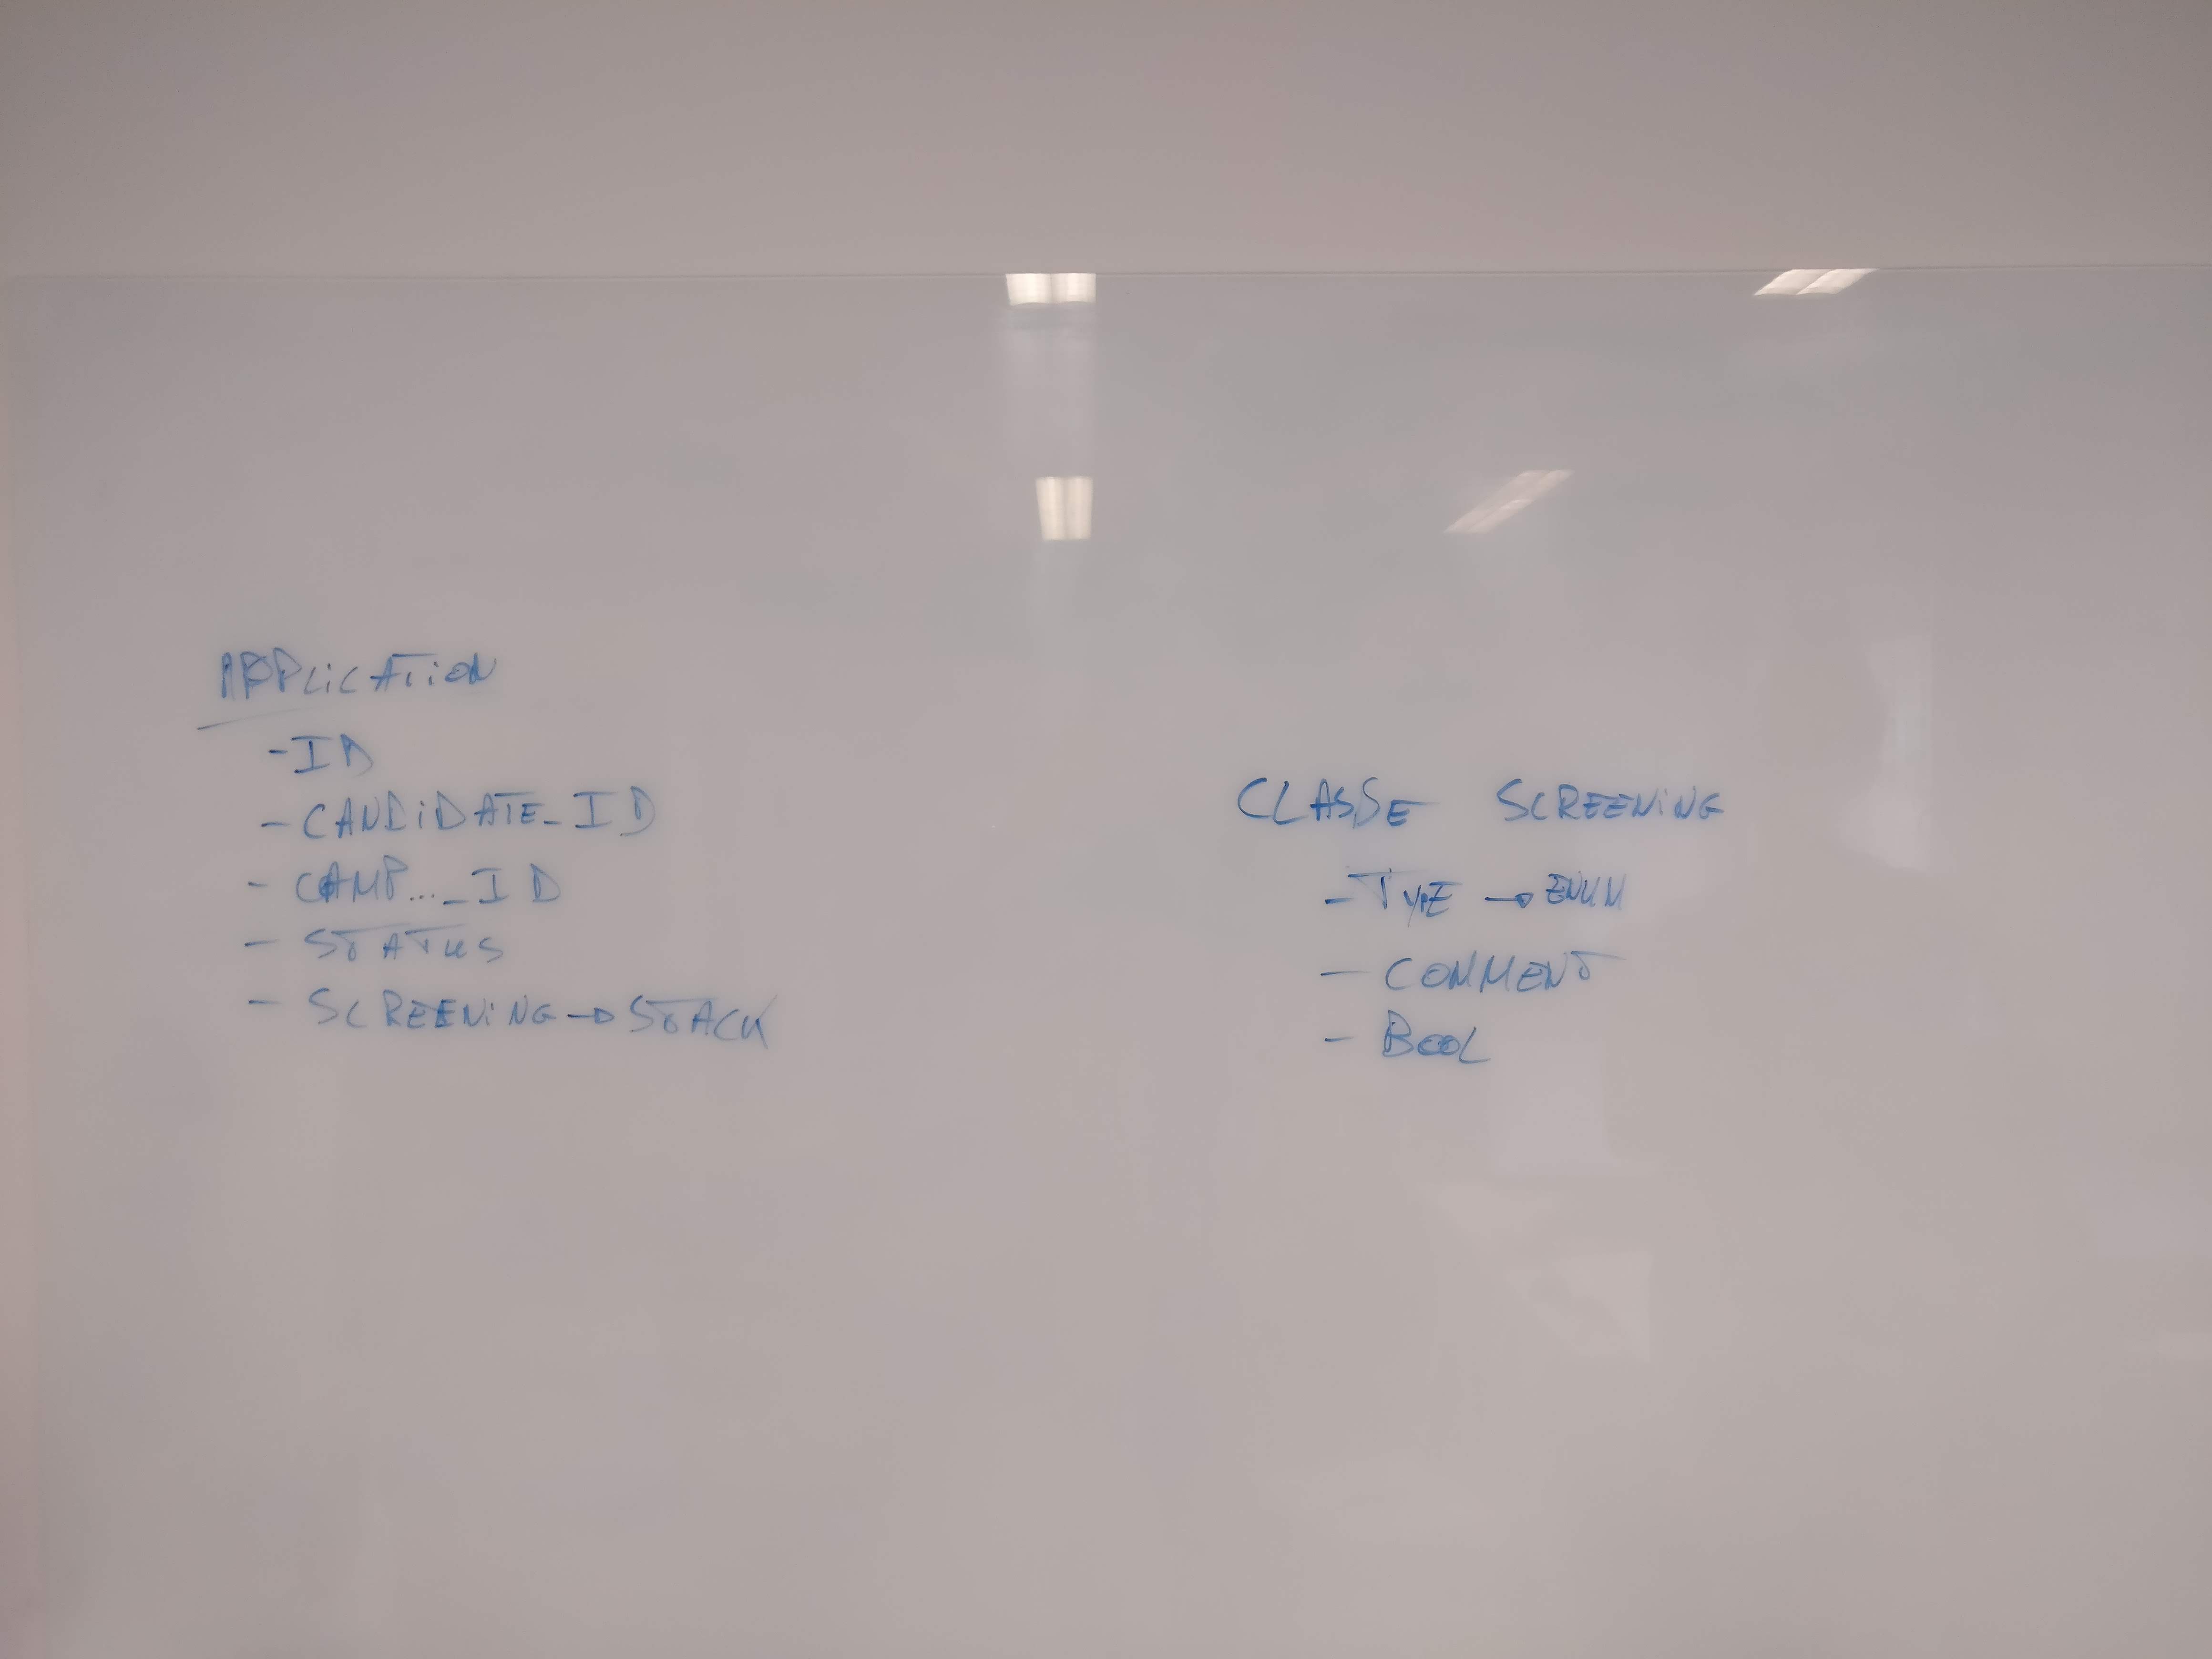 APPLICATION
- ID
- CANDIDATE_ID
- CAMP..._ID
- STATUS
- SCREENING → STACK
CLASSE SCREENING
- TYPE → ENUM
- COMMENT
- BOOL